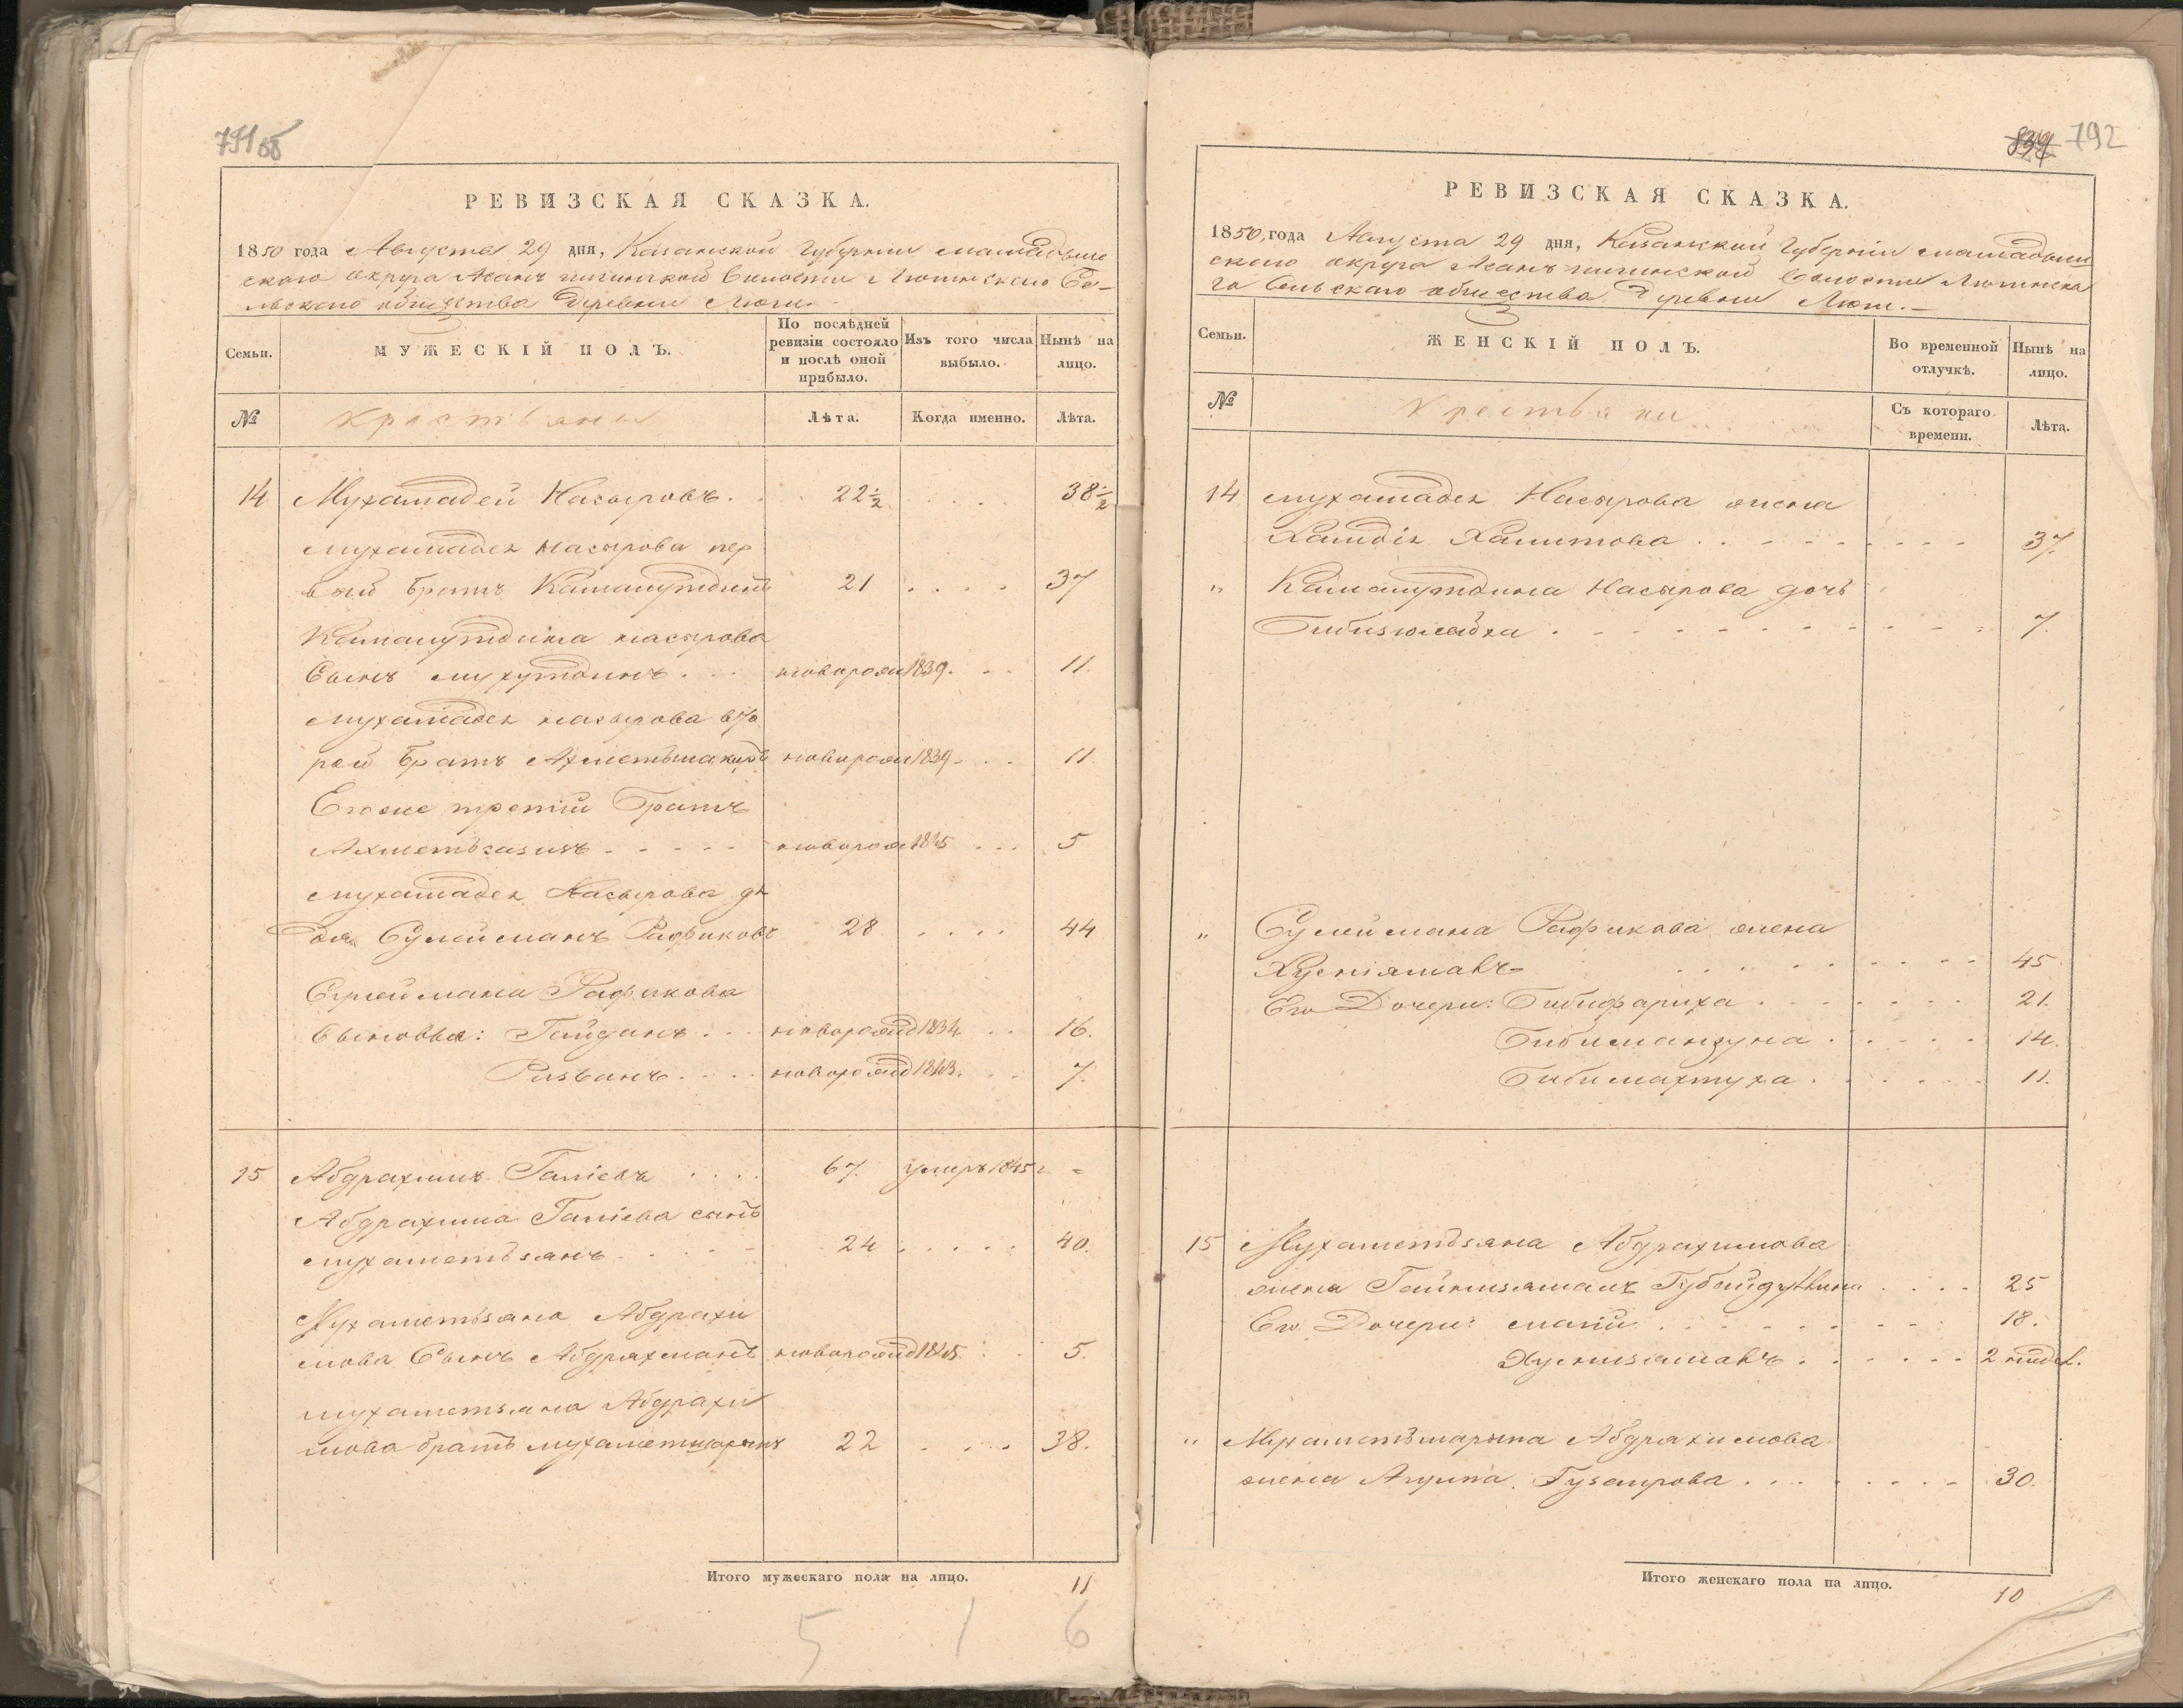 791об
РЕВИЗСКАЯ СКАЗКА.
1850 года Августа 29 дня, Казанской Губернии Мамадыш
скаго округа Асанъ волости Люгинскаго Се-
льскаго общества Деревни Люги.
Семьи.
МУЖЕСКІЙ ПОЛЪ.
По послѣдней ревизіи состояло и послѣ оной прибыло.
Изъ того числа выбыло.
Нынѣ на лицо.
№
Крестьяне
Лѣта.
Когда именно.
Лѣта.
14 Мухамадей Насыровъ. 22½ . . . 38½
Мухамадея Насырова пер
вый братъ Камалутдинъ 21 . . . . 37
Камалутдина насырова
Сынъ Мухутдинъ . . . новорож 1839. . . 11.
Мухамадея насырова вто
рой братъ новорож 1839. . . 11.
Егоже третій Братъ
Ахметьзянъ . . . . . новорож 1845 . . . 5
Мухамадея Насырова дя
дя Сулейманъ Рафиковъ 28 . . . . 44
Сулеймана Рафикова
Сыновья: Гайданъ . . . новорожд 1834. . . 16.
Ризванъ . . . . новорожд 1843. . . 7.
15 Абдрахимъ Галіевъ . . . . 67. умеръ 1845 г =
Абдрахима Галіева сынъ
Мухаметьзянъ . . . . . 24 . . . . . 40.
Мухаметьзяна Абдрахи
мова Сынъ Абдрахманъ новорожд 1845. . . 5.
Мухаметьзяна Абдрахи
мова братъ Мухаметшарыпъ 22 . . . . 38.
Итого мужескаго пола на лицо. 11
5 1 6
834 792
РЕВИЗСКАЯ СКАЗКА.
1850, года Августа 29 дня, Казанской Губерніи Мамадыш
скаго округа Асанъ волости Люгинска
го Сельскаго общества Деревни Люги. —
Семьи.
ЖЕНСКІЙ ПОЛЪ.
Во временной отлучкѣ.
Нынѣ на лицо.
№
Крестьяни
Съ котораго времени.
Лѣта.
14 Мухамадея Насырова жена
Хамдія Халитова . . . . . . . . . 37.
" Камалутдина Насырова дочь
Бибизюлайха . . . . . . . . . . . 7.
" Сулеймана Рафикова жена
Хусніямалъ . . . . . . . . . . 45.
Его Дочери: Бибифариха . . . . . . . 21.
. . . . . . 14.
. . . . . . 11.
15 Мухаметьзяна Абдрахимова
жена Гайнизямалъ Губайдуллина . . . . 25
Его Дочери: . . . . . . . . . 18.
Хуснизямалъ . . . . . . 2 недел.
" Мухаметьшарыпа Абдрахимова
жена Губаирова . . . . . . . . . 30.
Итого женскаго пола на лицо. 10